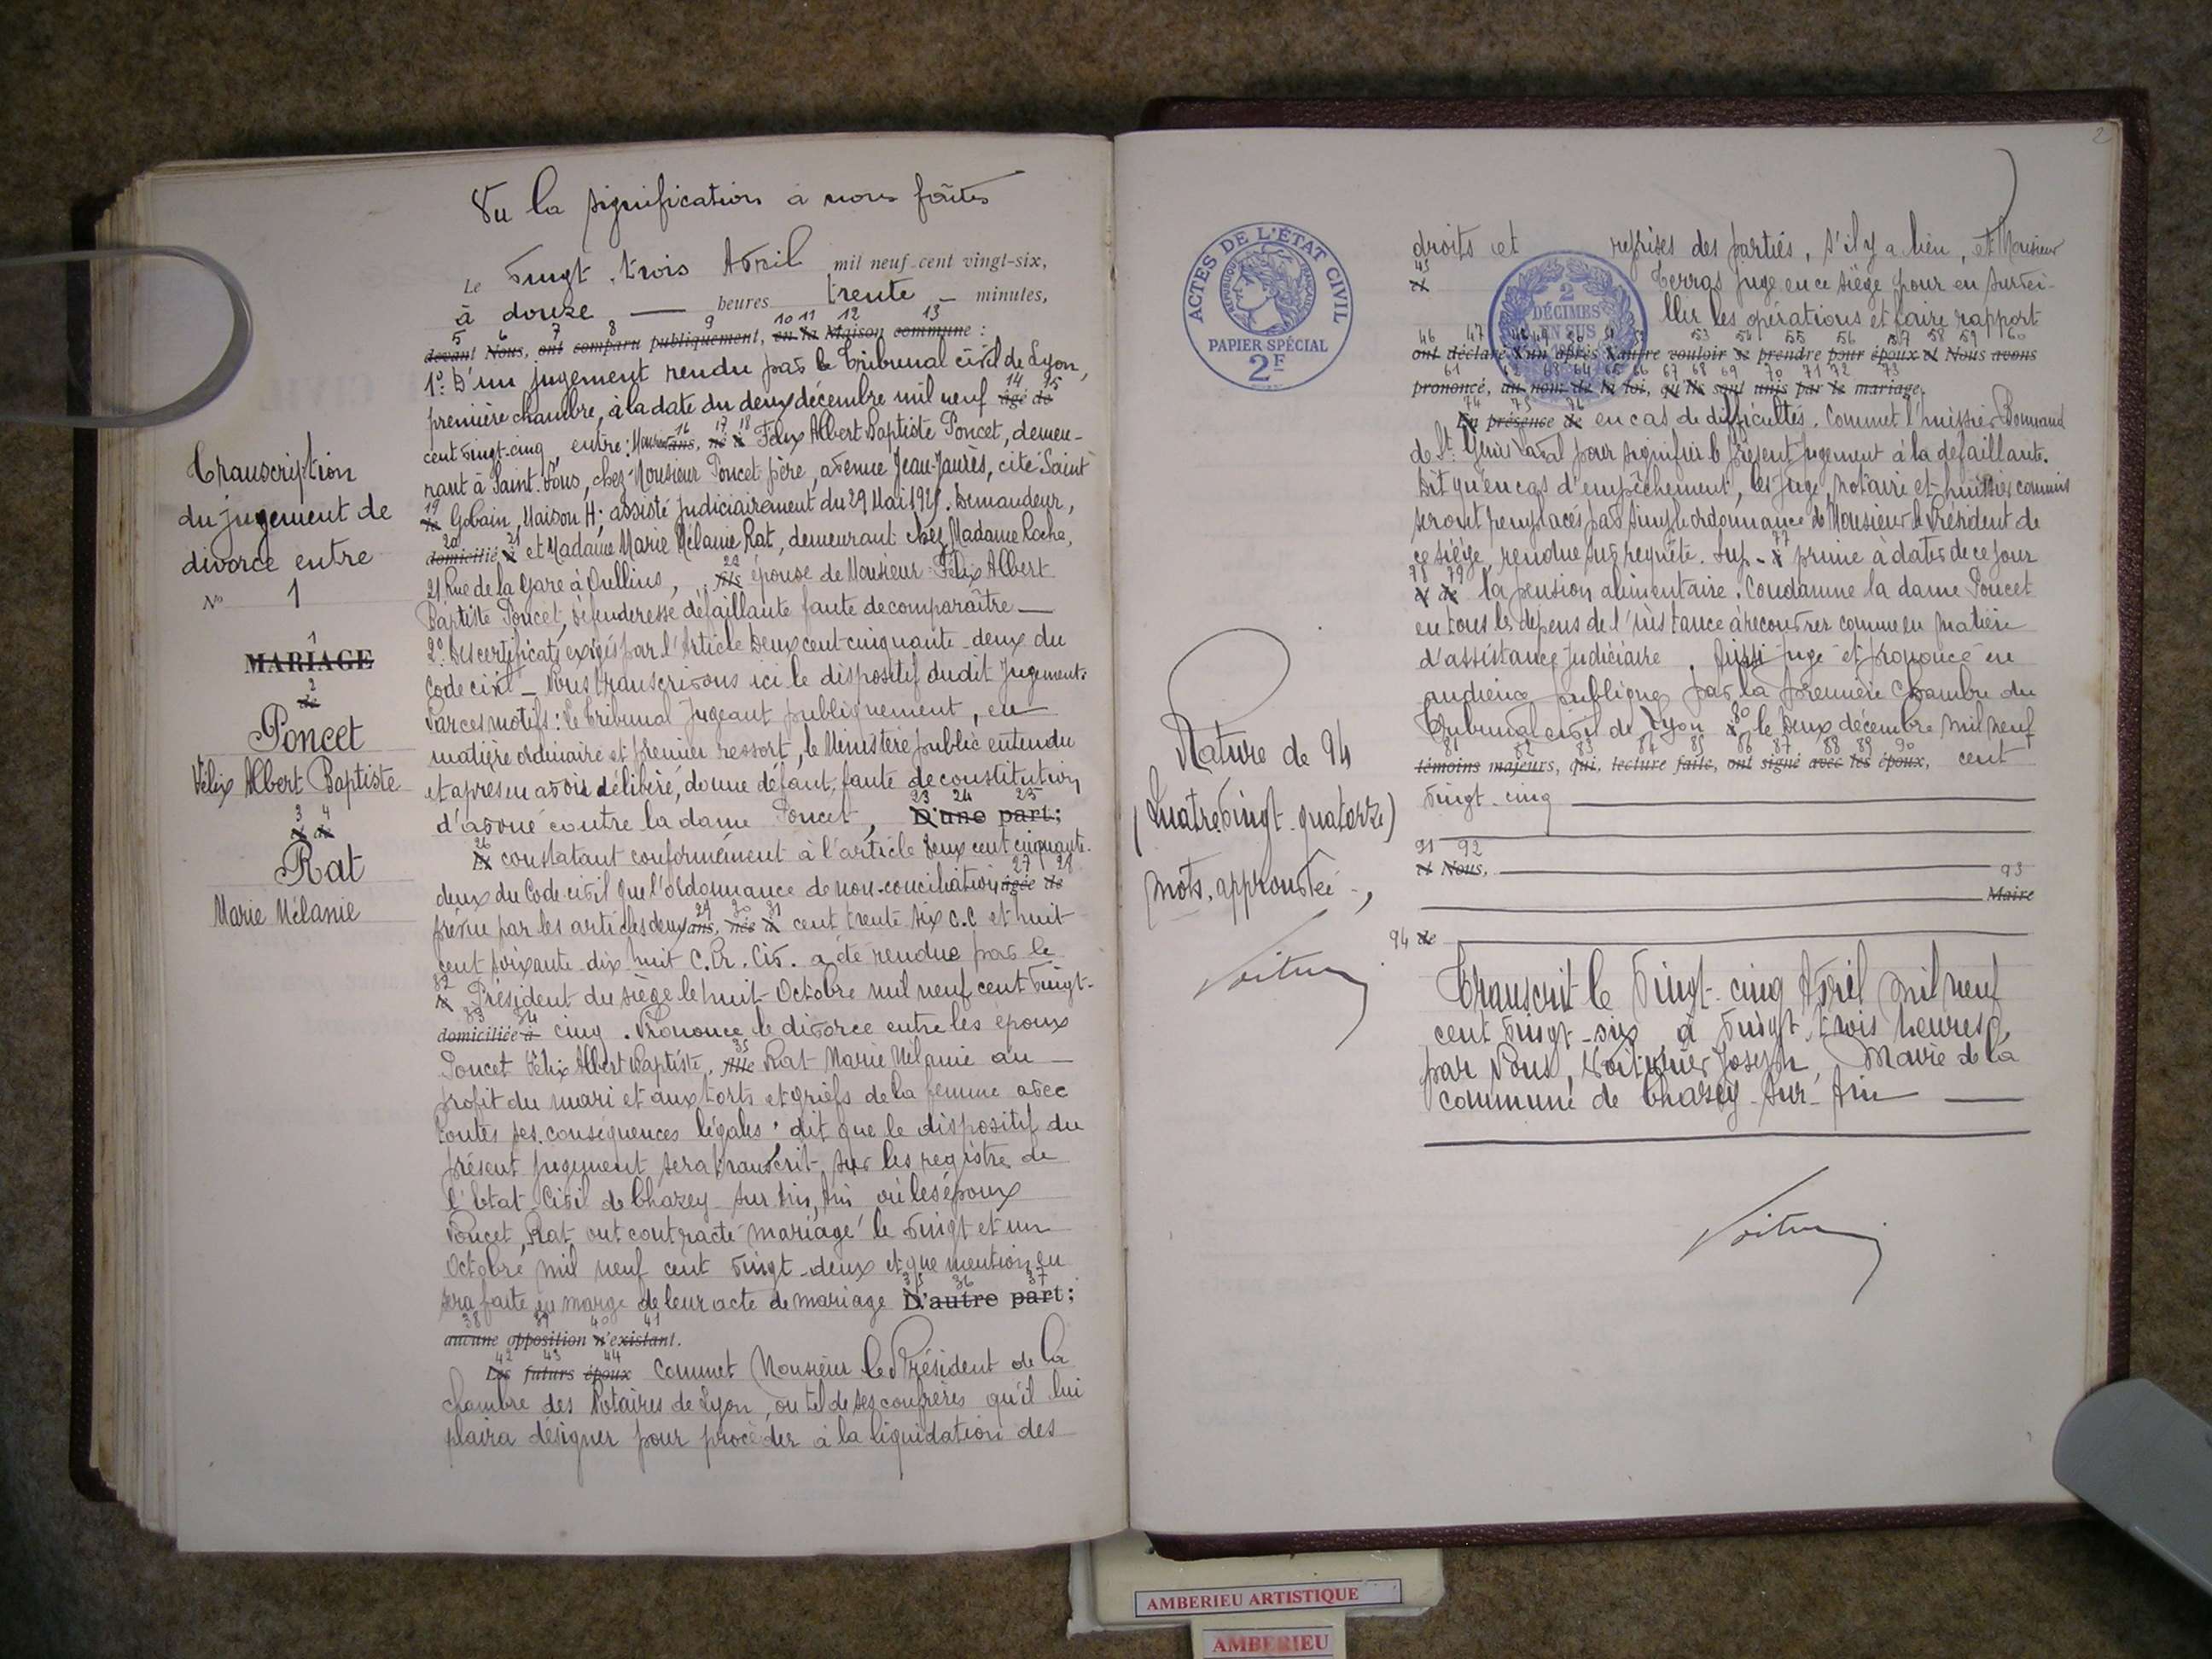 Vu la signification à nous faites
Le vingt-trois Avril mil neuf cent vingt-six,
à douze — heures trente — minutes,
5 6 7 8 9 10 11 12 13
devant Nous, ont comparu publiquement, en la Maison commune :
1º. D'un jugement rendu par le Tribunal civil de Lyon,
14 15
première chambre, à la date du deux décembre mil neuf âgé de
16 17 18
cent vingt-cinq, entre: Monsieur ans, né à Félix Albert Baptiste Poncet, demeu-
rant à Saint-Fons, chez Monsieur Poncet père, avenue Jean-Jaurès, cité Saint
19
le Gobain, Maison H; assisté judiciairement du 29 Mai 1925. Demandeur,
20 21
domicilié à et Madame Marie Mélanie Rat, demeurant chez Madame Roche,
22
21 Rue de la Gare à Oullins, fils épouse de Monsieur Félix Albert
Baptiste Poncet, défenderesse défaillante faute de comparaître —
2º. Des certificats exigés par l'Article Deux cent cinquante-deux du
Code civil — Nous transcrivons ici le dispositif dudit Jugement.
Par ces motifs: Le Tribunal Jugeant publiquement, en
matière ordinaire et premier ressort, le Ministère public entendu
et après en avoir délibéré, donne défaut, faute de constitution
23 24 25
d'avoué contre la dame Poncet, D'une part;
26
Et constatant conformément à l'article Deux cent cinquante-
27 28
deux du Code civil que l'ordonnance de non-conciliation âgée de
29 30 31
prévue par les articles deux ans, née à cent trente six C.C et huit
cent soixante dix huit C.Pr. Civ. a été rendue par le
32
le Président du siège le huit Octobre mil neuf cent vingt-
33 34
domiciliée à cinq. Prononce le divorce entre les époux
35
Poncet Félix Albert Baptiste, fille Rat Marie Mélanie au —
profit du mari et aux torts et griefs de la femme avec
toutes ses conséquences légales; dit que le dispositif du
présent jugement sera transcrit sur les registres de
l'Etat-Civil de Chazey-sur-Ain, Ain où les époux
Poncet, Rat ont contracté mariage le vingt et un
Octobre mil neuf cent vingt-deux et que mention en
35 36 37
sera faite en marge de leur acte de mariage D'autre part;
38 39 40 41
aucune opposition n'existant.
42 43 44
Les futurs époux Commet Monsieur le Président de la
chambre des Notaires de Lyon, ou tel de ses confrères qu'il lui
plaira désigner pour procéder à la liquidation des
Transcription
du jugement de
divorce entre
Nº 1
1
MARIAGE
2
de
Poncet
Félix Albert Baptiste
3 4
et de
Rat
Marie Mélanie
2
ACTES DE L'ÉTAT CIVIL
RÉPUBLIQUE FRANÇAISE
PAPIER SPÉCIAL
2F
2
DÉCIMES
EN SUS
droits et reprises des parties, s'il y a lieu, et Monsieur
45
et Terras Juge en ce siège pour en survei-
ller les opérations et faire rapport
46 47 53 54 55 56 57 58 59 60
ont déclaré l'un après l'autre vouloir se prendre pour époux et Nous avons
61 62 63 64 65 66 67 68 69 70 71 72 73
prononcé, au nom de la loi, qu'ils sont unis par le mariage.
74 75 76
En présence de en cas de difficultés. Commet l'huissier Bonnand
de St. Genis Laval pour signifier le présent jugement à la défaillante.
Dit qu'en cas d'empêchement, les Juge, notaire et huissier commis
seront remplacés par simple ordonnance de Monsieur le Président de
77
ce siège, rendue sur requête. Sup- à prime à dater de ce jour
78 79
et de la pension alimentaire. Condamne la dame Poncet
en tous les dépens de l'instance à recouvrer comme en matière
d'assistance judiciaire. Ainsi jugé et prononcé en
audience publique par la première Chambre du
80
Tribunal civil de Lyon le Deux décembre mil neuf
81 82 83 84 85 86 87 88 89 90
témoins majeurs, qui, lecture faite, ont signé avec les époux, cent
vingt-cinq
91 92
et Nous,
93
Maire
94 de
Transcrit le vingt-cinq Avril mil neuf
cent vingt-six à vingt-trois heures,
par Nous, Voiturier Joseph, Maire de la
commune de Chazey-sur-Ain —
Rature de 94
(Quatre vingt-quatorze)
mots approuvée.
AMBERIEU ARTISTIQUE
AMBERIEU